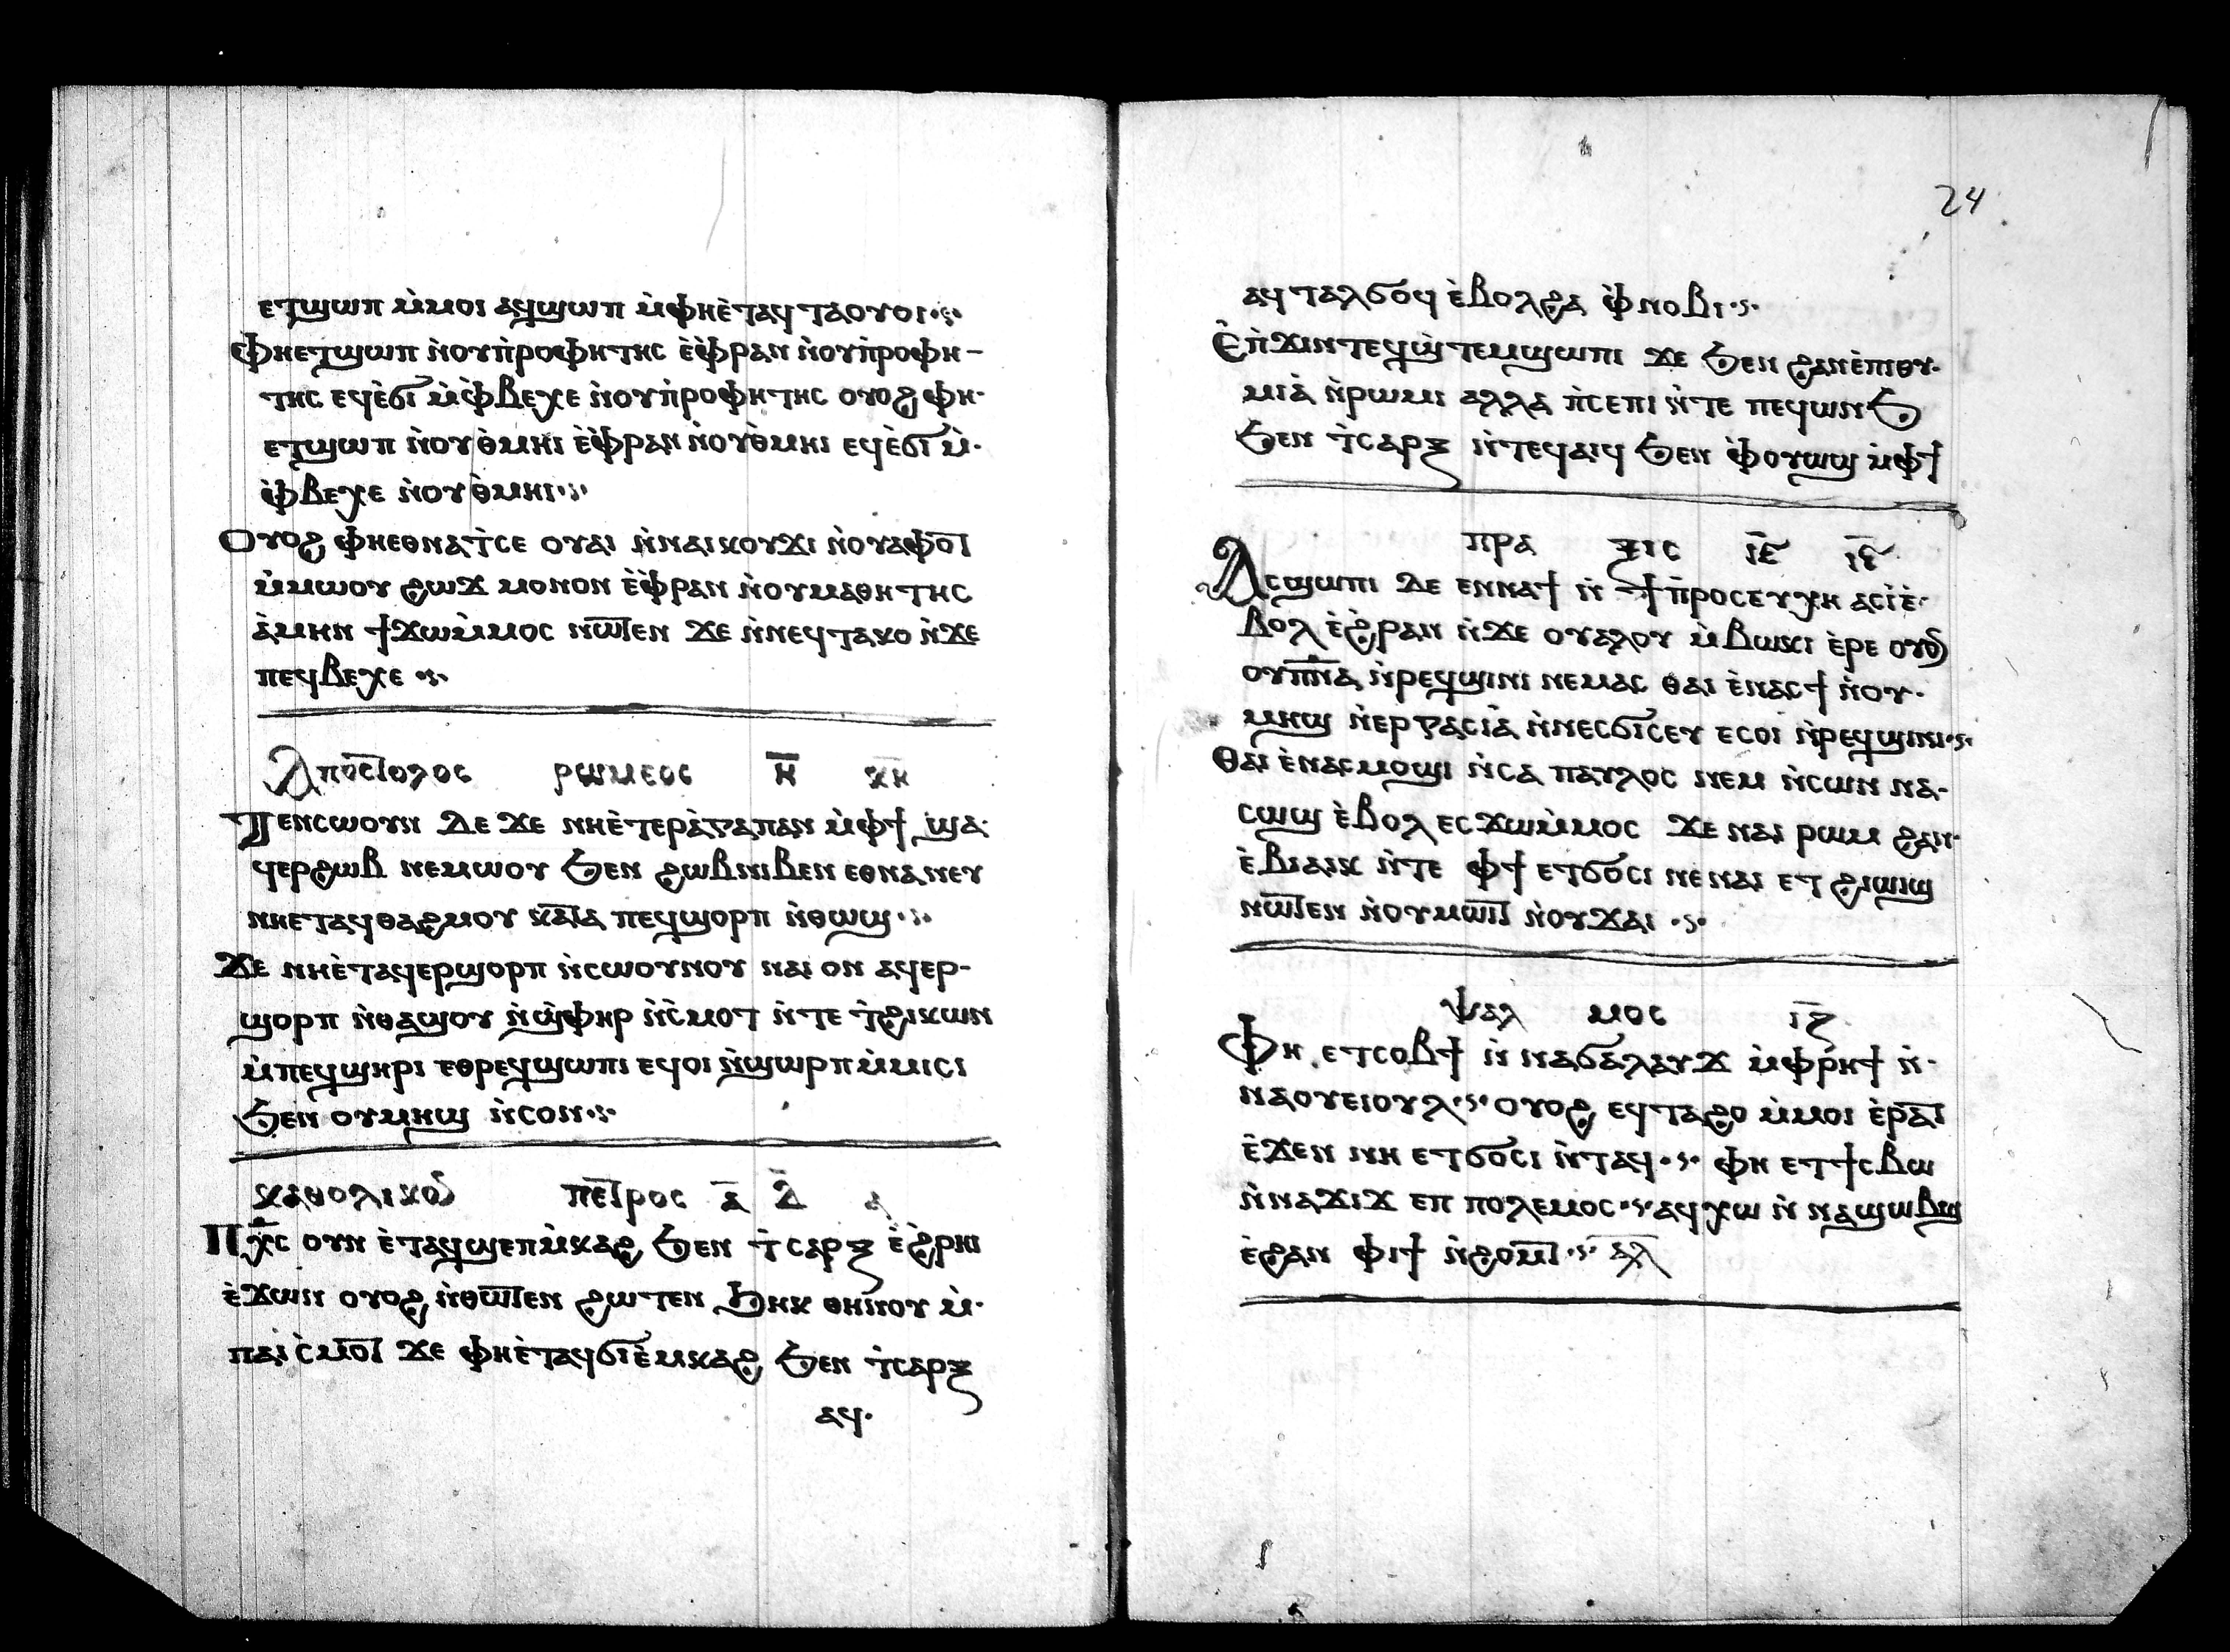 ⲉⲧϣⲱⲡ ⲙ̀ⲙⲟⲓ ⲁϥϣⲱⲡ ⲙ̀ⲫⲏⲉ̀ⲧⲁϥ ⲧⲁⲟⲩⲟⲓ·⳽·
Ⲫⲏⲉⲧϣⲱⲡ ⲛ̀ⲟⲩⲡ̀ⲣⲟⲫⲏⲧⲏⲥ ⲉ̀ⲫ̀ⲣⲁⲛ ⲛ̀ⲟⲩⲡ̀ⲣⲟⲫⲏ-
ⲧⲏⲥ ⲉϥⲉ̀ϭⲓ ⲙ̀ⲫ̀ⲃⲉⲭⲉ ⲛ̀ⲟⲩⲡ̀ⲣⲟⲫⲏⲧⲏⲥ ⲟⲩⲟϩ ⲫⲏ·
ⲉⲧϣⲱⲡ ⲛ̀ⲟⲩⲑ̀ⲙⲏⲓ ⲉ̀ⲫ̀ⲣⲁⲛ ⲛ̀ⲟⲩⲑ̀ⲙⲏⲓ ⲉϥⲉ̀ϭⲓ ⲙ̀·
ⲫ̀ⲃⲉⲭⲉ ⲛ̀ⲟⲩⲑ̀ⲙⲏⲓ·⳽·
Ⲟⲩⲟϩ ⲫⲏⲉⲑⲛⲁⲧ̀ⲥⲉ ⲟⲩⲁⲓ ⲛ̀ⲛⲁⲓⲕⲟⲩϫⲓ ⲛ̀ⲟⲩⲁⲫⲟ̅ⲧ
ⲙ̀ⲙⲱⲟⲩ ϩⲱϫ ⲙⲟⲛⲟⲛ ⲉ̀ⲫ̀ⲣⲁⲛ ⲛ̀ⲟⲩⲙⲁⲑⲏⲧⲏⲥ
ⲁ̀ⲙⲏⲛ ϯϫⲱⲙ̀ⲙⲟⲥ ⲛⲱ̅ⲧⲉⲛ ϫⲉ ⲛ̀ⲛⲉϥⲧⲁⲕⲟ ⲛ̀ϫⲉ
ⲡⲉϥⲃⲉⲭⲉ ·⳽·
Ⲁⲡⲟⲥ̅ⲧⲟⲗⲟⲥ ⲣⲱⲙⲉⲟⲥ ⲏ̅ ⲕ̅ⲏ
Ⲧⲉⲛⲥⲱⲟⲩⲛ ⲇⲉ ϫⲉ ⲛⲏⲉ̀ⲧⲉⲣⲁ̀ⲅⲁⲡⲁⲛ ⲙ̀ⲫϯ ϣⲁ·
ϥⲉⲣϩⲱⲃ ⲛⲉⲙⲱⲟⲩ ϧⲉⲛ ϩⲱⲃⲛⲓⲃⲉⲛ ⲉⲑⲛⲁⲛⲉⲩ
ⲛⲏⲉⲧⲁϥⲑⲁϩⲙⲟⲩ ⲕⲁ̅ⲧⲁ ⲡⲉϥϣⲟⲣⲡ ⲛ̀ⲑⲱϣ·⳽·
Ϫⲉ ⲛⲏⲉ̀ⲧⲁϥⲉⲣϣⲟⲣⲡ ⲛ̀ⲥⲱⲟⲩⲛⲟⲩ ⲛⲁⲓ ⲟⲛ ⲁϥⲉⲣ-
ϣⲟⲣⲡ ⲛ̀ⲑⲁϣⲟⲩ ⲛ̀ϣ̀ⲫⲏⲣ ⲛ̀ⲥ̀ⲙⲟⲧ ⲛ̀ⲧⲉ ⲧ̀ϩⲓⲕⲱⲛ
ⲙ̀ⲡⲉϥϣⲏⲣⲓ ⲉⲑⲣⲉϥϣⲱⲡⲓ ⲉϥⲟⲓ ⲛ̀ϣⲱⲣⲡⲙ̀ⲙⲓⲥⲓ
ϧⲉⲛ ⲟⲩⲙⲏϣ ⲛ̀ⲥⲟⲛ·⳽·
ⲕⲁⲑⲟⲗⲓⲕⲟⲩ ⲡⲉ̅ⲧⲣⲟⲥ ⲁ̅ ⲇ̅ ⲁ̅
Ⲡⲭ̅ⲥ ⲟⲩⲛ ⲉ̀ⲧⲁϥϣⲉⲡⲙ̀ⲕⲁϩ ϧⲉⲛ ⲧ̀ⲥⲁⲣⲝ ⲉ̀ϩⲣⲏⲓ
ⲉ̀ϫⲱⲛ ⲟⲩⲟϩ ⲛ̀ⲑⲱ̅ⲧⲉⲛ ϩⲱⲧⲉⲛ ϧⲏⲕ ⲑⲏⲛⲟⲩ ⲙ̀·
ⲡⲁⲓⲥ̀ⲙⲟ̅ⲧ ϫⲉ ⲫⲏⲉ̀ⲧⲁϥϭⲓⲉ̀ⲙⲕⲁϩ ϧⲉⲛ ⲧ̀ⲥⲁⲣⲝ
ⲁϥ·
24
ⲁϥ ⲧⲁⲗϭⲟϥ ⲉ̀ⲃⲟⲗϩⲁ ⲫ̀ⲛⲟⲃⲓ·⳽·
Ⲉ̀ⲡ̀ϫⲓⲛⲧⲉϥϣ̀ⲧⲉⲙϣⲱⲡⲓ ϫⲉ ϧⲉⲛ ϩⲁⲛⲉ̀ⲡⲓⲑⲩ·
ⲙⲓⲁ̀ ⲛ̀ⲣⲱⲙⲓ ⲁⲗⲗⲁ ⲡ̀ⲥⲉⲡⲓ ⲛ̀ⲧⲉ ⲡⲉϥⲱⲛϧ
ϧⲉⲛ ⲧ̀ⲥⲁⲣⲝ ⲛ̀ⲧⲉϥⲁⲓϥ ϧⲉⲛ ⲫ̀ⲟⲩⲱϣ ⲙ̀ⲫϯ
ⲡⲣⲁ ⲝⲓⲥ ⲓ̅ⲉ̅ ⲓ̅ⲋ̅
Ⲁⲥϣⲱⲡⲓ ⲇⲉ ⲉⲛⲛⲁϯ ⲛ̀ ϯⲡ̀ⲣⲟⲥⲉⲩⲭⲏ ⲁⲥⲓ̀ⲉ̀·
ⲃⲟⲗ ⲉ̀ϩ̀ⲣⲁⲛ ⲛ̀ϫⲉ ⲟⲩⲁⲗⲟⲩ ⲙ̀ⲃⲱⲕⲓ ⲉ̀ⲣⲉ ⲟⲩⲟ
ⲟⲩⲡ̅ⲛ̅ⲁ ⲛ̀ⲣⲉϥϣⲓⲛⲓ ⲛⲉⲙⲁⲥ ⲑⲁⲓ ⲉ̀ⲛⲁⲥϯ ⲛ̀ⲟⲩ·
ⲙⲏϣ ⲛ̀ⲉⲣⲅⲁⲥⲓⲁ̀ ⲛ̀ⲛⲉⲥϭⲓⲥⲉⲩ ⲉⲥⲟⲓ ⲛ̀ⲣⲉϥϣⲓⲛⲓ·⳽·
Ⲑⲁⲓ ⲉ̀ⲛⲁⲥⲙⲟϣⲓ ⲛ̀ⲥⲁ ⲡⲁⲩⲗⲟⲥ ⲛⲉⲙ ⲛ̀ⲥⲱⲛ ⲛⲁ-
ⲥⲱϣ ⲉ̀ⲃⲟⲗ ⲉⲥϫⲱⲙ̀ⲙⲟⲥ ϫⲉ ⲛⲁⲓ ⲣⲱⲙ ϩⲁⲛ·
ⲉ̀ⲃⲓⲁⲓⲕ ⲛ̀ⲧⲉ ⲫϯ ⲉⲧϭⲟⲥⲓ ⲛⲉⲛⲁⲓ ⲉⲧ ϩⲓⲱⲓϣ
ⲛⲱ̅ⲧⲉⲛ ⲛ̀ⲟⲩⲙⲱ̅ⲓⲧ ⲛ̀ⲟⲩϫⲁⲓ ·⳽·
ⲯⲁⲗ ⲙⲟⲥ ⲓ̅ⲍ̅
Ⲫⲏ ⲉⲧⲥⲟⲃϯ ⲛ̀ ⲛⲁϭⲁⲗⲁⲩϫ ⲙ̀ⲫⲣⲏϯ ⲛ̀·
ⲛⲁⲟⲩⲉⲓⲟⲩⲗ·⳽· ⲟⲩⲟϩ ⲉϥⲧⲁϩⲟ ⲙ̀ⲙⲟⲓ ⲉ̀ⲣⲁ̅ⲧ
ⲉ̀ϫⲉⲛ ⲛⲏ ⲉⲧϭⲟⲥⲓ ⲛ̀ⲧⲁϥ·⳽· ⲫⲏ ⲉⲧϯⲥⲃⲱ
ⲛ̀ⲛⲁϫⲓϫ ⲉⲡ ⲡⲟⲗⲉⲙⲟⲥ·⳽· ⲁϥⲭⲱ ⲛ̀ ⲛⲁϣⲱⲃϣ
ⲉ̀ϩⲁⲛ ⲫⲓϯ ⲛ̀ϩⲟⲙ̅ⲧ·⳽· ⲁ̅ⲗ̅